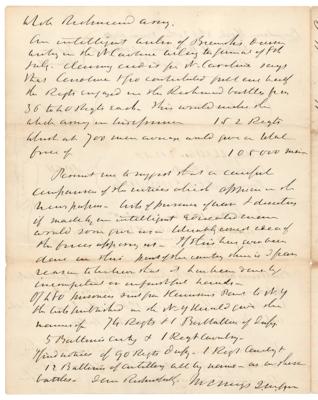 whole Richmond army.
An intelligent writer of Branch's Division
writing in the N Carolina
July. claiming credit for N. Carolina says
that Carolina troops constituted full one half
of the Regts engaged in the Richmond battles from
36 to 40 Regts each. This would make the
whole army in his 152 Regts
which at 700 men average would give a total
force of 105 000 men
Permit me to suggest that a careful
comparison of the notices which appear in the
newspapers – lists of prisoners of war & deserters
if made by an intelligent educated man
would soon give us a idea of
the forces opposing us – If this has ever been
done in this part of the country there is I fear
reason to believe that it has been done by
incompetent or unfaithful hands –
Of 460 prisoners sent from to N.Y
the lists published in the N Y Herald give the
names of 74 Regts & 1 Battalion of Infy
5 Batteries arty & 1 Regt Cavalry –
I find notices of 90 Regts Infy – 1 Regt Cavalry &
12 Batteries of artillery all by name – as in these
battles – I am Respectfully M C Meigs